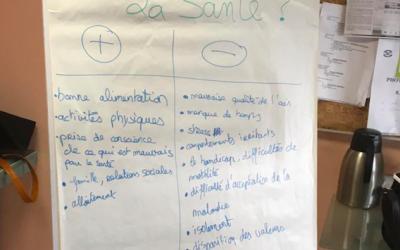 La Santé ?
+
-
• bonne alimentation
• activités physiques
• prise de conscience
de ce qui est mauvais
pour la santé
• famille, relations sociales
• allaitement
• mauvaise qualité de l'air
• manque de temps
• stress
• comportements irritants
• le handicap, difficultés de
motilité
• difficulté d'acceptation de la
maladie
• isolement
• disparition des valeurs